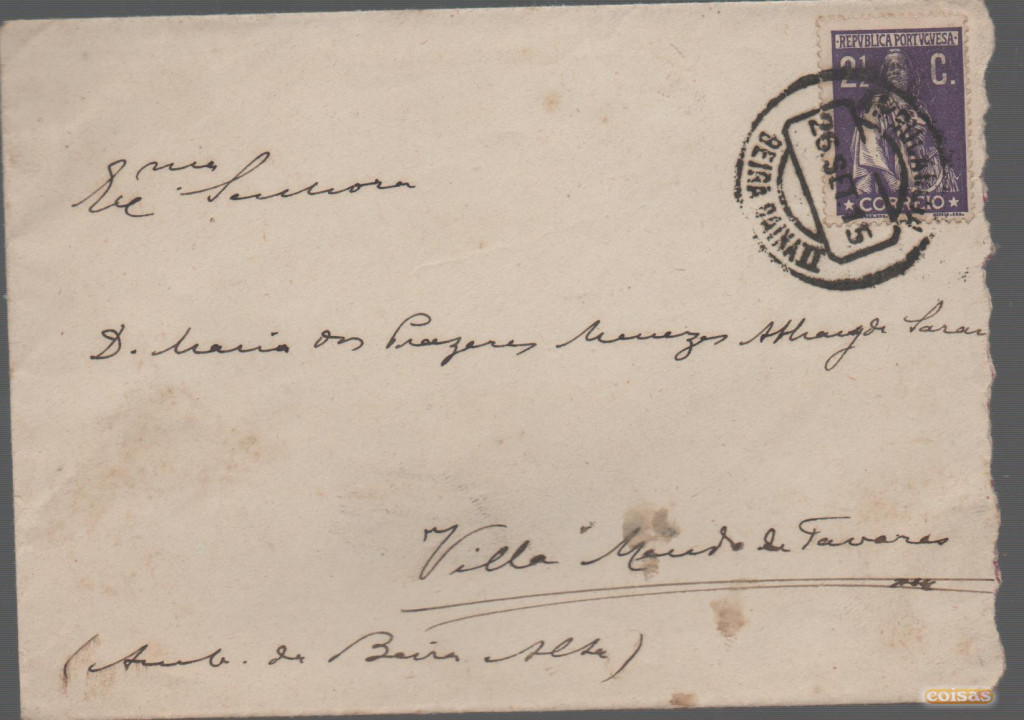 REPVBLICA PORTVGVESA
2½ C.
CORREIO
26 SET 15
BEIRA BAIXA II
Exma Senhora
D. Maria dos Prazeres Menezes
Villa Mendo de Tavares
(Amb. da Beira Alta)
coisas